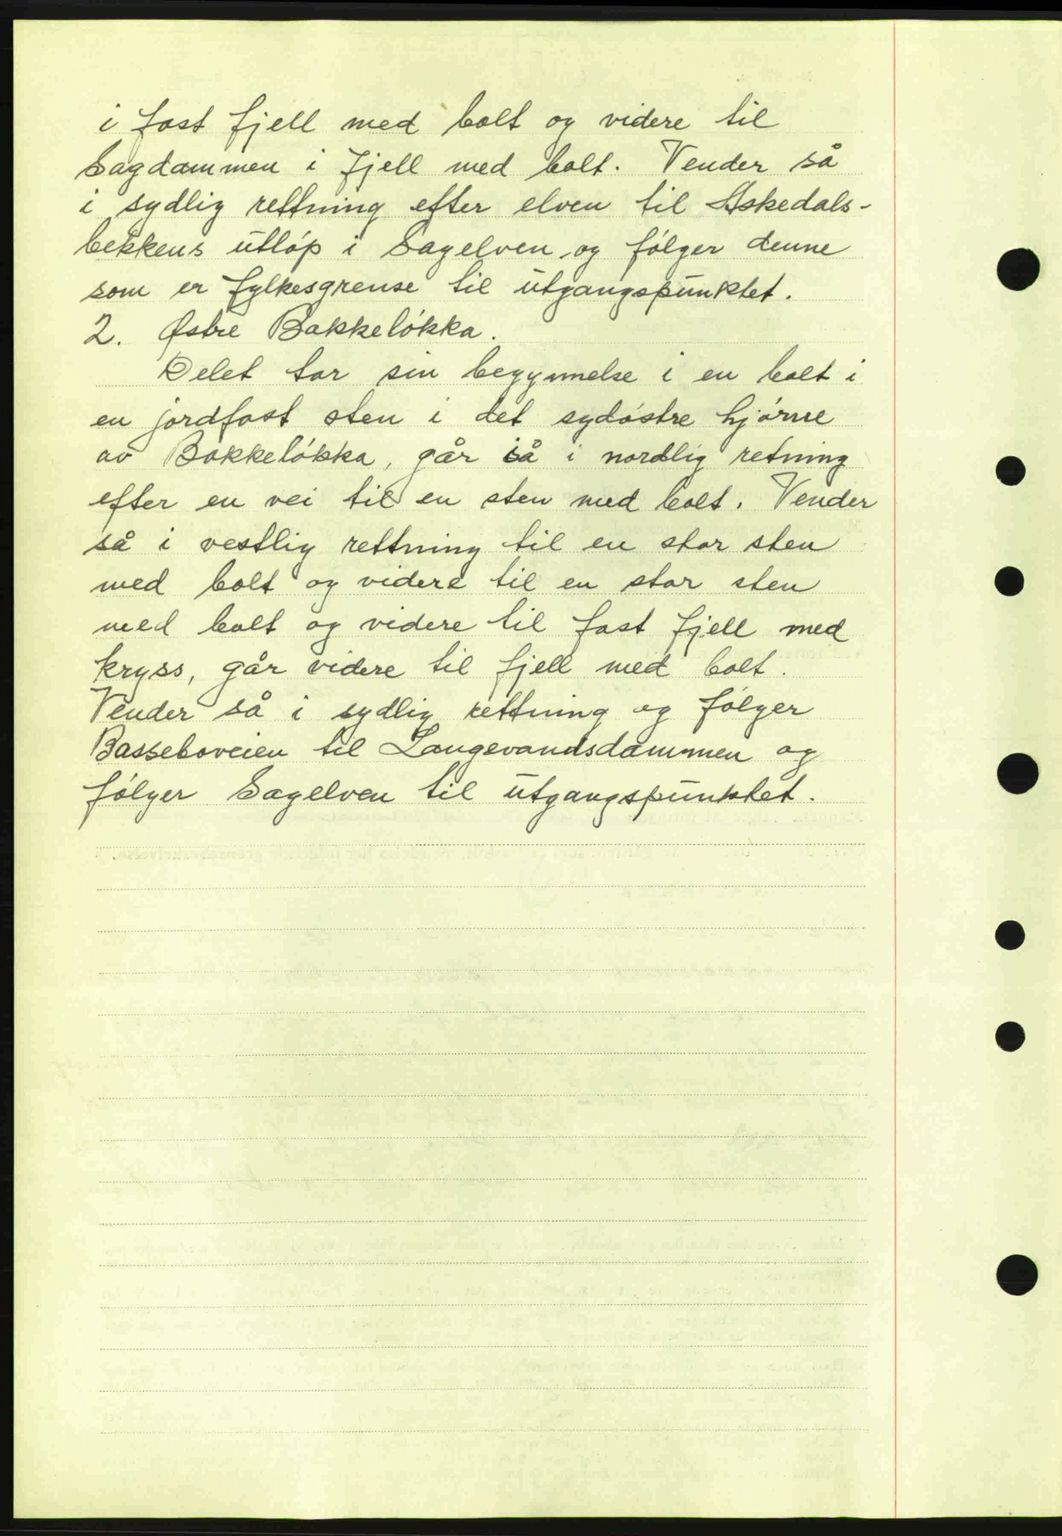 i fast fjell med bolt og videre til
Sagdammen i fjell med bolt. Vender så
i sydlig rettning efter elven til Askedals-
bekkens utløp i Sagelven og følger denne
som er fylkesgrense til utgangspunktet.
2. Østre Bakkeløkka.
Delet tar sin begynnelse i en bolt i
en jordfast sten i det sydøstre hjørne
av Bakkeløkka, går så i nordlig retning
efter en vei til en sten med bolt. Vender
så i vestlig rettning til en stor sten
med bolt og videre til en stor sten
med bolt og videre til fast fjell med
kryss, går videre til fjell med bolt.
Vender så i sydlig rettning og følger
Basseboveien til Langevandsdammen og
følger Sagelven til utgangspunktet.